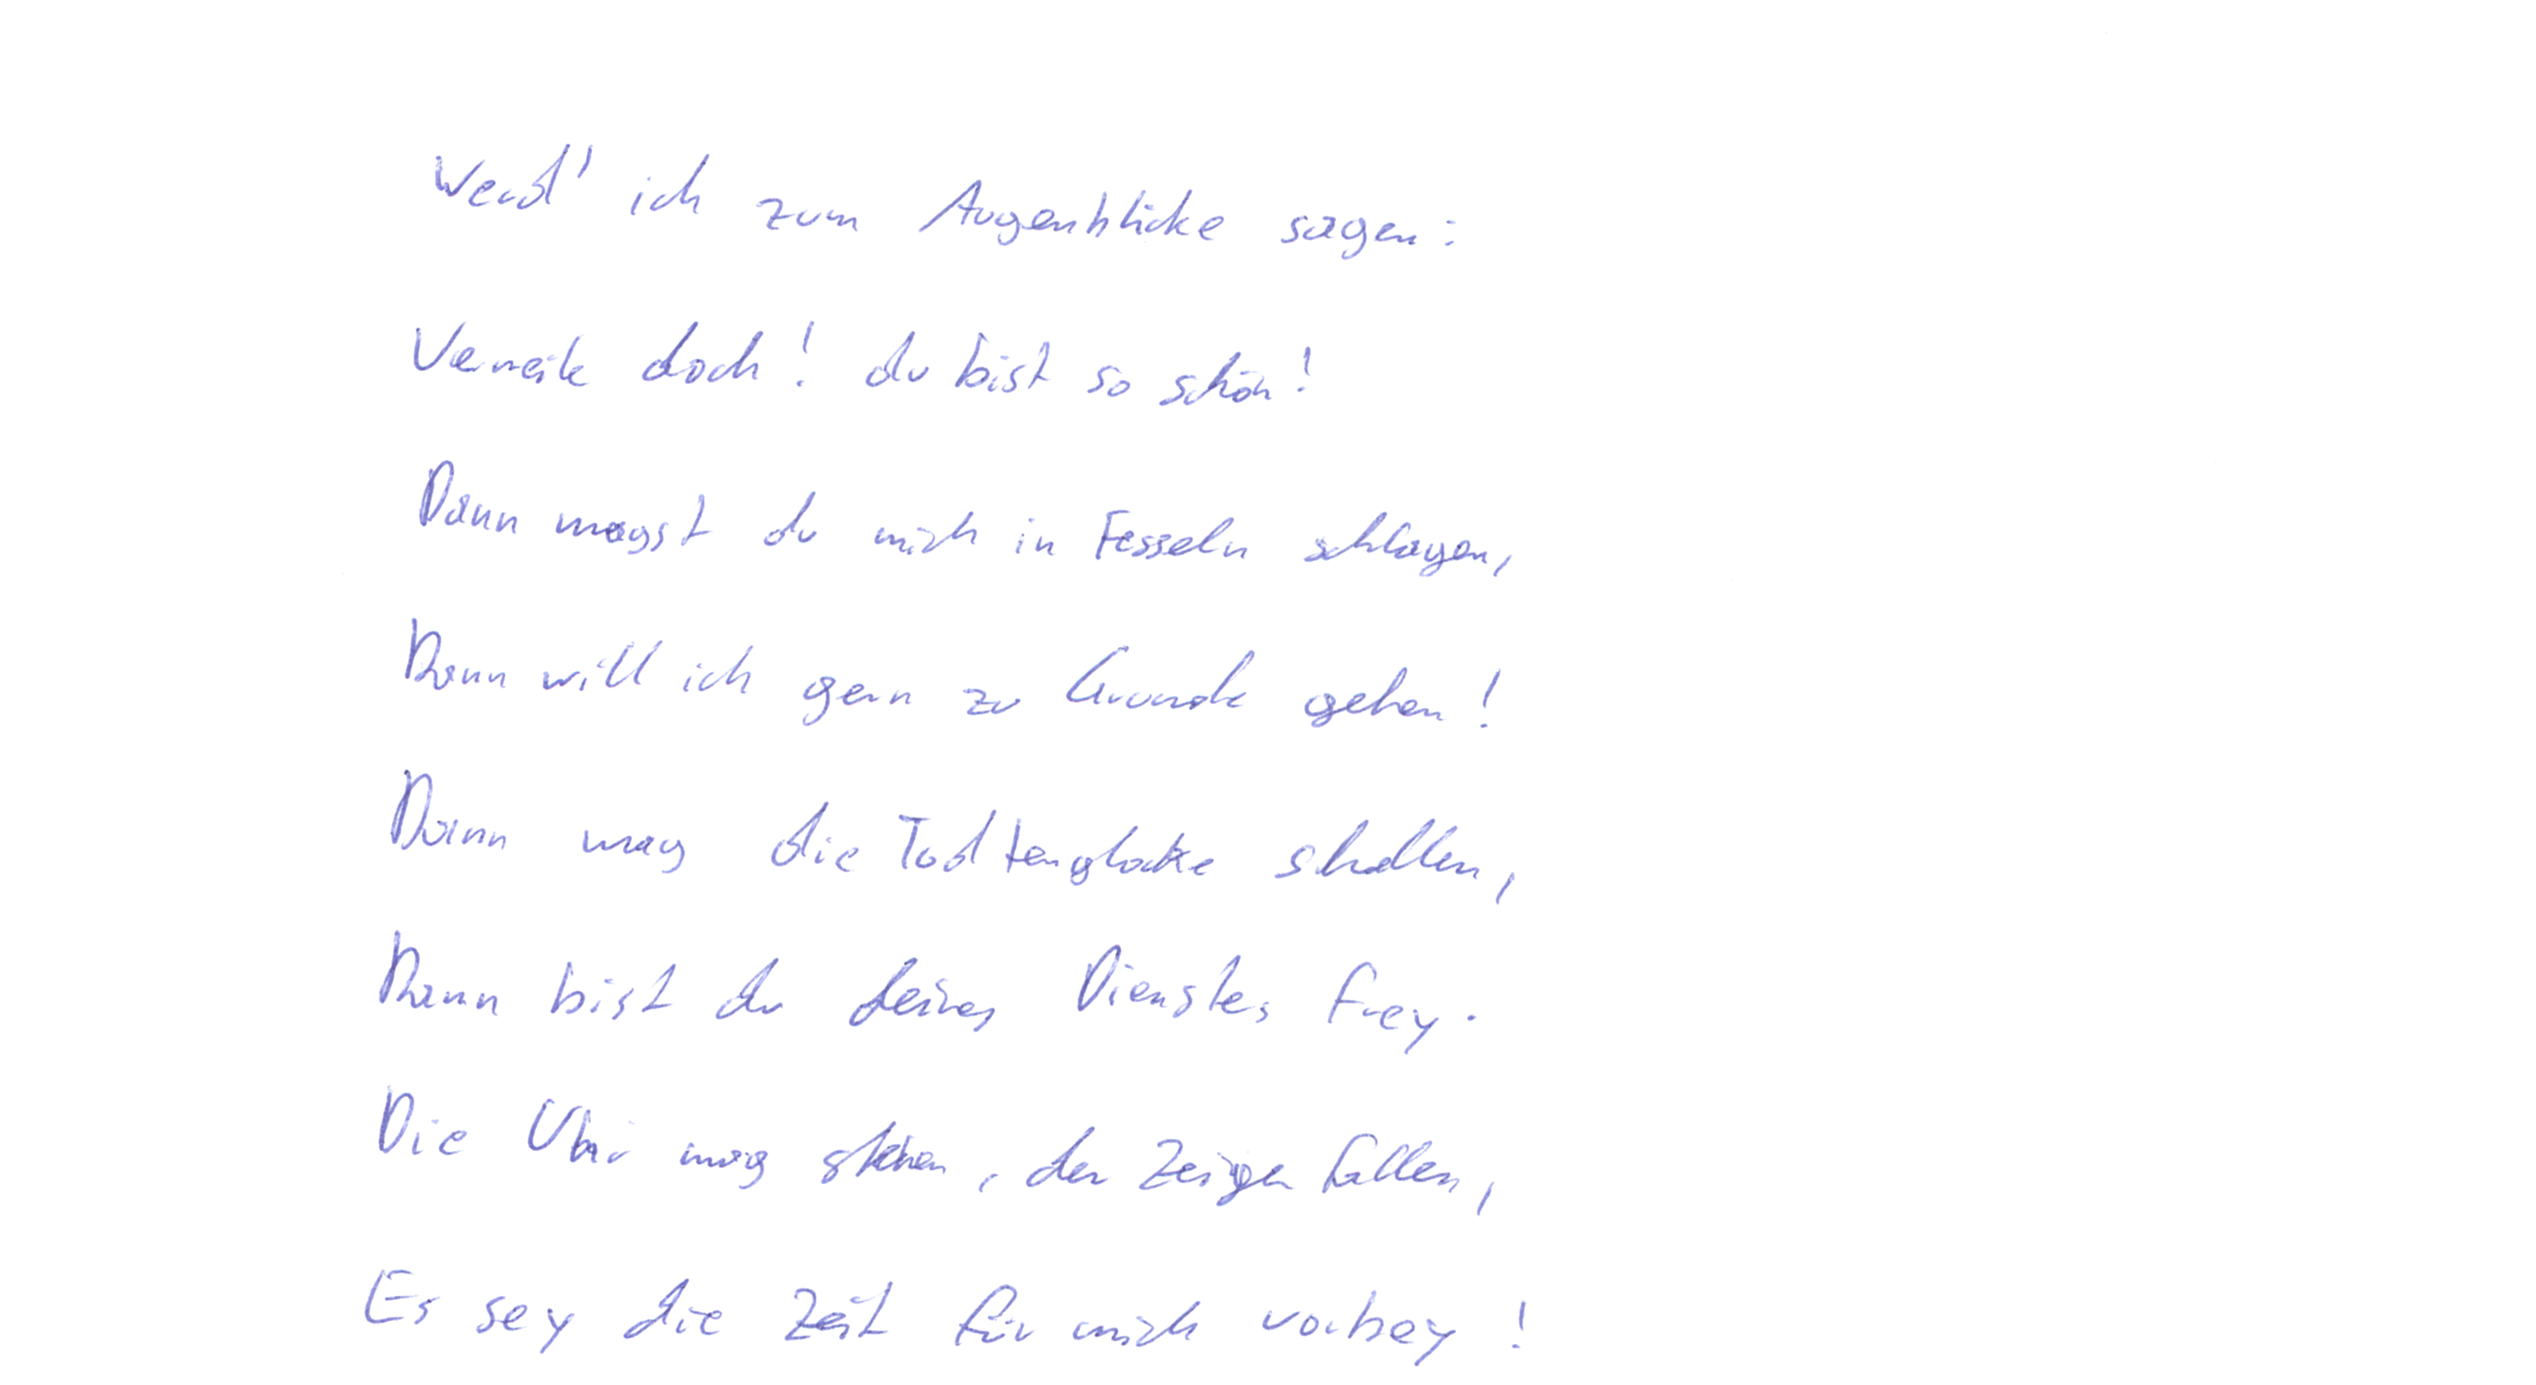 Werd' ich zum Augenblicke sagen:
Verweile doch! du bist so schön!
Dann magst du mich in Fesseln schlagen,
Dann will ich gern zu Grunde gehen!
Dann mag die Todtenglocke schallen,
Dann bist du deines Dienstes frey.
Die Uhr mag stehen, der Zeiger fallen,
Es sey die Zeit für mich vorbey!